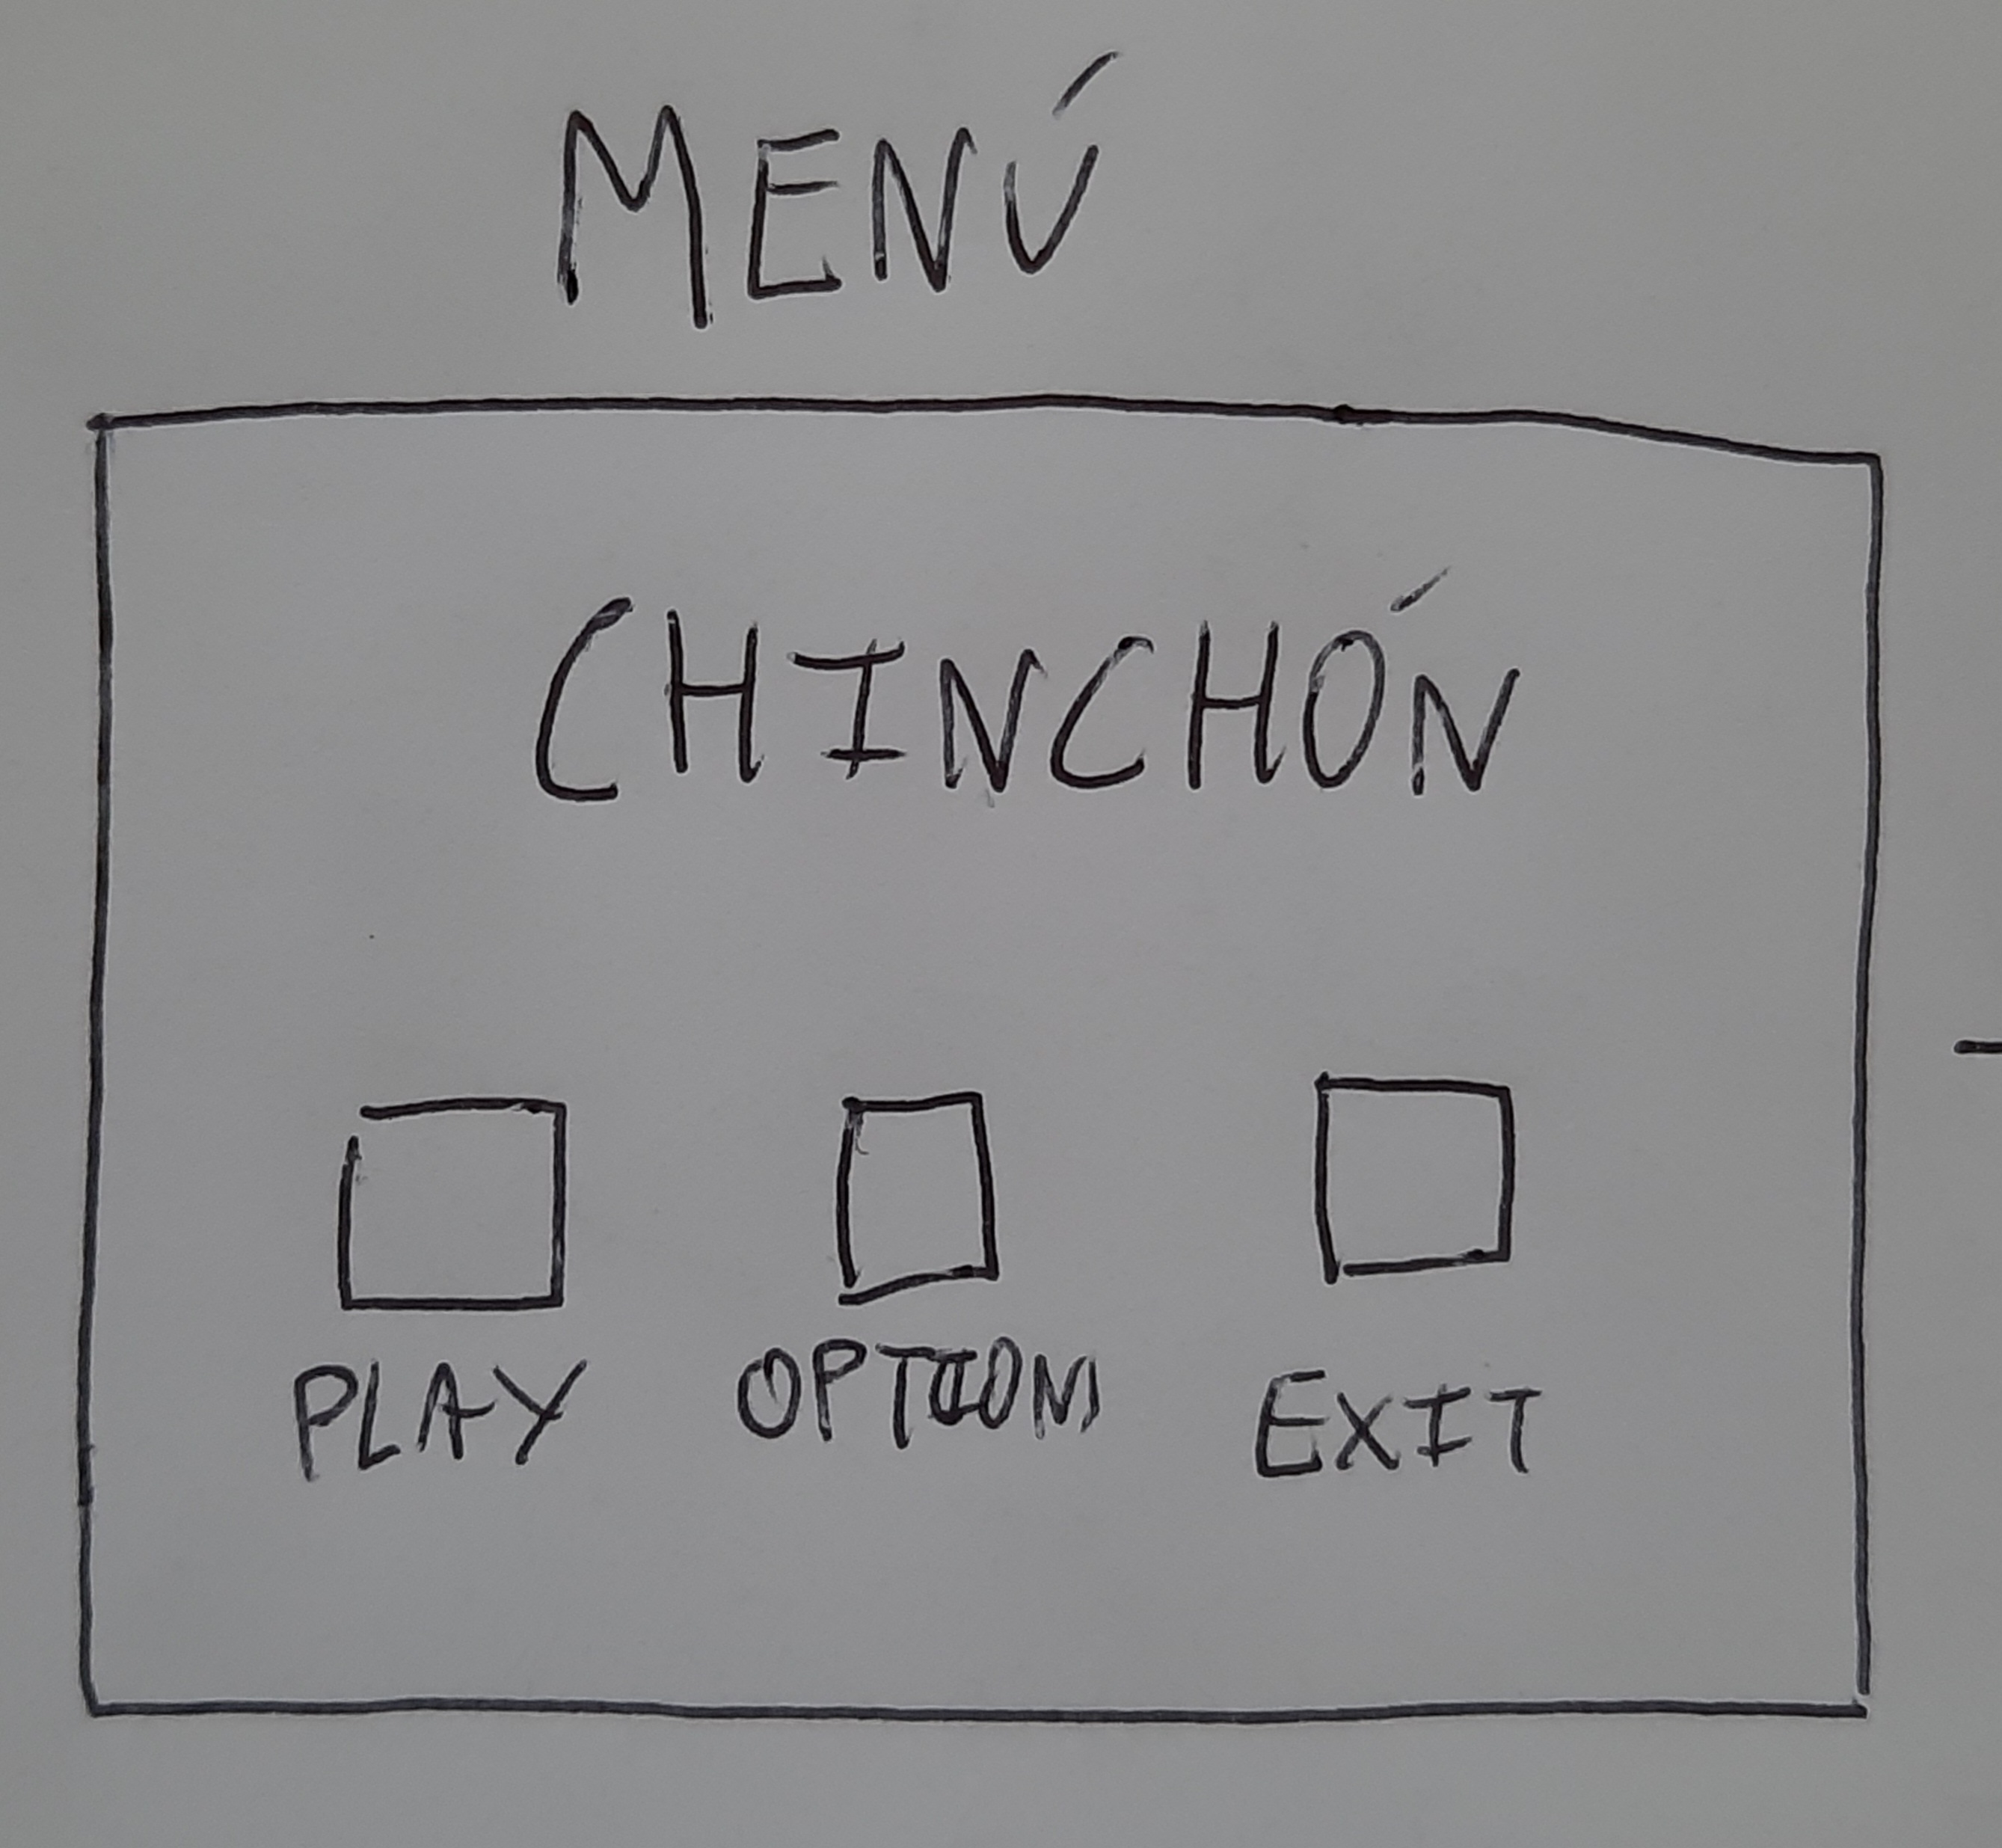 MENÚ
CHINCHÓN
PLAY OPTION EXIT